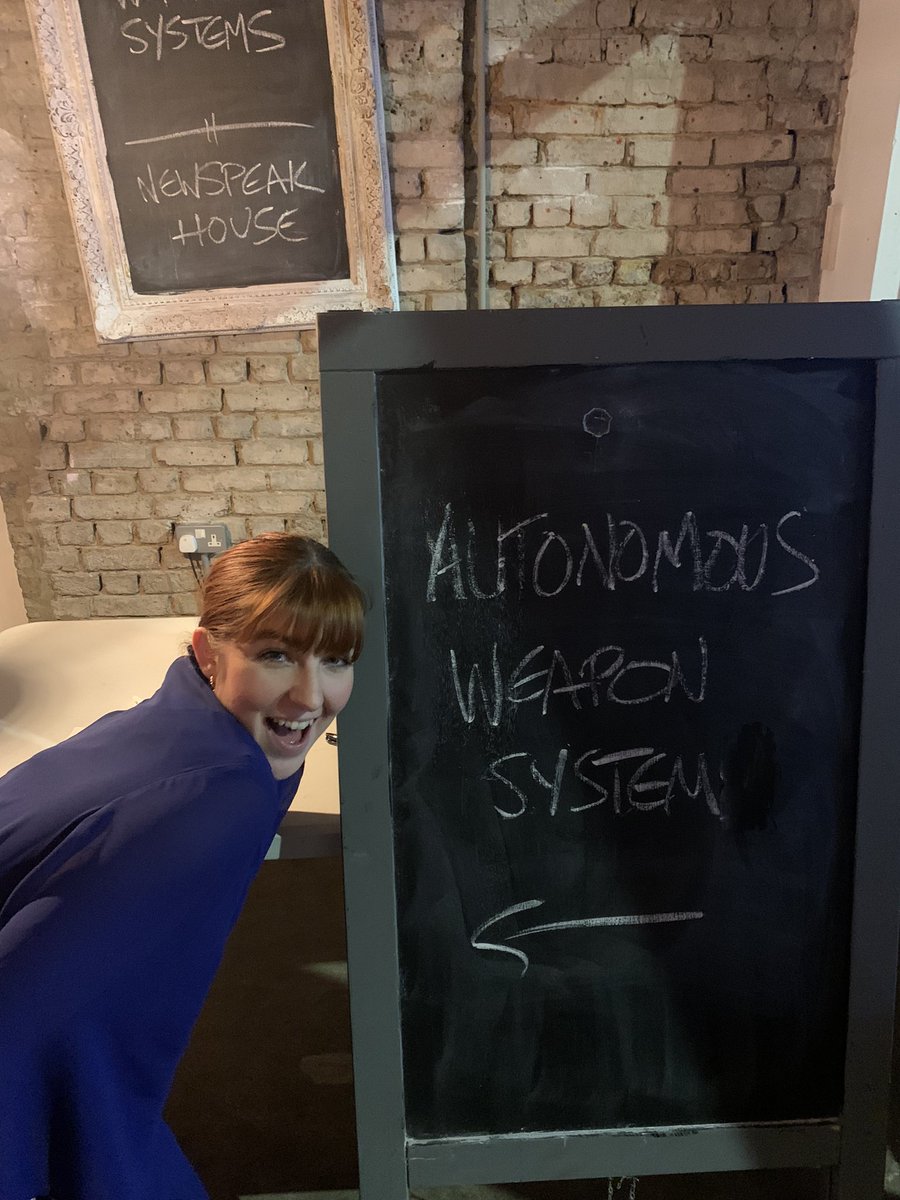 SYSTEMS
NEWSPEAK
HOUSE
AUTONOMOUS
WEAPON
SYSTEM